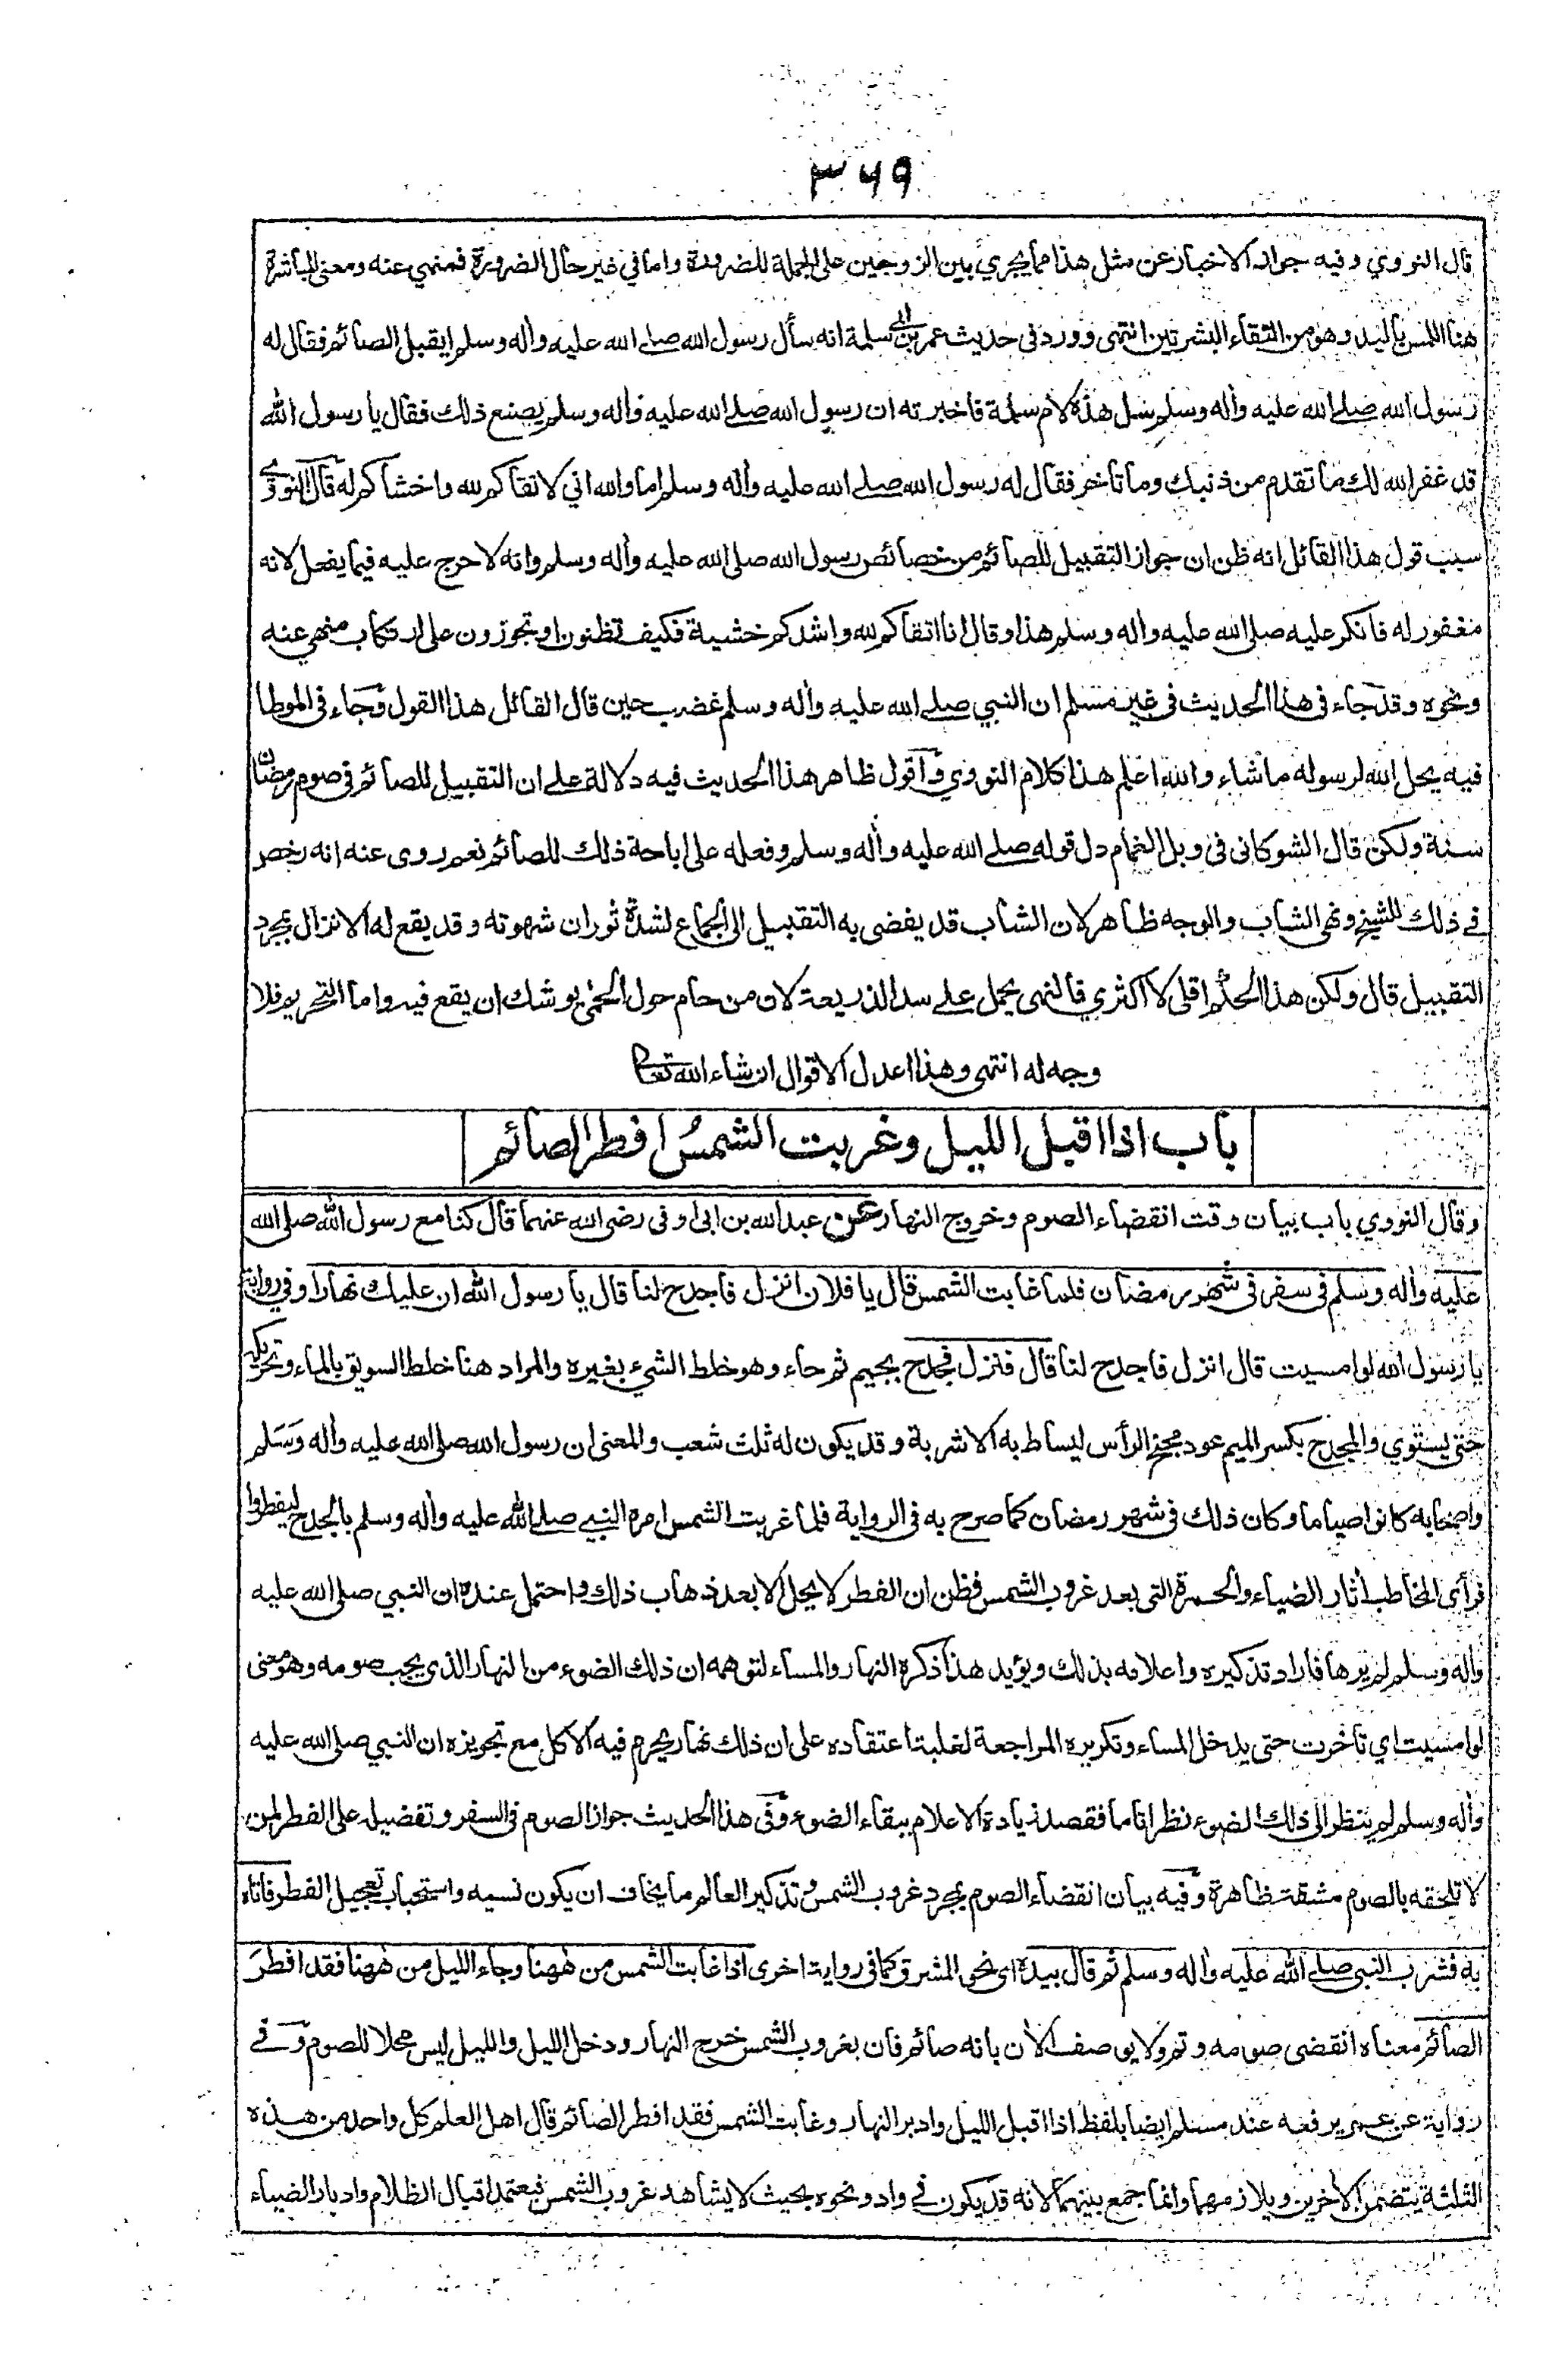 ٣٦٩
قال النووي وفيه جواز الاخبار عن مثل هذا مما يجري بين الزوجين على الجملة للضرورة واما في غير حال الضرورة فمنهي عنه ومعنى المباشرة
هنا اللمس باليد وهو من التقاء البشرتين انتهى وورد في حديث عمر بن ابي سلمة انه سأل رسول الله صلى الله عليه وأله وسلم ايقبل الصائم فقال له
رسول الله صلى الله عليه وأله وسلم سل هذه لام سلمة فاخبرته ان رسول الله صلى الله عليه وأله وسلم يصنع ذلك فقال يا رسول الله
قد غفر الله لك ما تقدم من ذنبك وما تأخر فقال له رسول الله صلى الله عليه وأله وسلم اما والله اني لاتقاكم لله واخشاكم له قال النووي
سبب قول هذا القائل انه ظن ان جواز التقبيل للصائم من خصائص رسول الله صلى الله عليه وأله وسلم وانه لا حرج عليه فيما يفعل لانه
مغفور له فانكر عليه صلى الله عليه وأله وسلم هذا وقال انا اتقاكم لله واشدكم خشية فكيف تظنون او تجوزون على ارتكاب منهي عنه
ونحوه وقد جاء في هذا الحديث في غير مسلم ان النبي صلى الله عليه وأله وسلم غضب حين قال القائل هذا القول وجاء في الموطا
فيه يحل الله لرسوله ما شاء والله اعلم هذا كلام النووي واقول ظاهر هذا الحديث فيه دلالة على ان التقبيل للصائم في صوم رمضان
سنة ولكن قال الشوكاني في وبل الغمام دل قوله صلى الله عليه وأله وسلم وفعله على اباحة ذلك للصائم نعم روى عنه انه رخص
في ذلك للشيخ ونهى الشاب والوجه ظاهر لان الشاب قد يفضى به التقبيل الى الجماع لشدة ثوران شهوته وقد يقع له الانزال بمجرد
التقبيل قال ولكن هذا الحكم اقلي لا اكثري فالنهى يحمل على سد الذريعة لان من حام حول الحمى يوشك ان يقع فيه واما التحريم فلا
وجه له انتهى وهذا اعدل الاقوال ان شاء الله تعالى
باب اذا اقبل الليل وغربت الشمس افطر الصائم
وقال النووي باب بيان وقت انقضاء الصوم وخروج النهار عن عبد الله بن ابى اوفى رضى الله عنهما قال كنا مع رسول الله صلى الله
عليه وأله وسلم في سفر في شهر رمضان فلما غابت الشمس قال يا فلان انزل فاجدح لنا قال يا رسول الله ان عليك نهارا وفي رواية
يا رسول الله لو امسيت قال انزل فاجدح لنا قال فنزل فجدح بجيم ثم حاء وهو خلط الشيء بغيره والمراد هنا خلط السويق بالماء وتحريكه
حتى يستوي والمجدح بكسر الميم عود مجنح الرأس ليساط به الاشربة وقد يكون له ثلث شعب والمعنى ان رسول الله صلى الله عليه وأله وسلم
واصحابه كانوا صياما وكان ذلك في شهر رمضان كما صرح به في الرواية فلما غربت الشمس امره النبي صلى الله عليه وأله وسلم بالجدح ليفطروا
فرأى المخاطب أثار الضياء والحمرة التى بعد غروب الشمس فظن ان الفطر لا يحل الا بعد ذهاب ذلك واحتمل عنده ان النبي صلى الله عليه
وأله وسلم لم يرها فاراد تذكيره واعلامه بذلك ويؤيد هذا ذكره النهار والمساء لتوهمه ان ذلك الضوء من النهار الذي يجب صومه وهو معنى
لو امسيت اي تأخرت حتى يدخل المساء وتكريره المراجعة لغلبة اعتقاده على ان ذلك نهار يحرم فيه الاكل مع تجويزه ان النبي صلى الله عليه
وأله وسلم لم ينظر الى ذلك الضوء نظرا تاما فقصد زيادة الاعلام ببقاء الضوء وفى هذا الحديث جواز الصوم في السفر وتفضيله على الفطر لمن
لا تلحقه بالصوم مشقة ظاهرة وفيه بيان انقضاء الصوم بمجرد غروب الشمس وتذكير العالم ما يخاف ان يكون نسيه واستحباب تعجيل الفطر فاتاه
به فشرب النبي صلى الله عليه وأله وسلم ثم قال بيده اى نحو المشرق كما في رواية اخرى اذا غابت الشمس من ههنا وجاء الليل من ههنا فقد افطر
الصائم معناه انقضى صومه وتم ولا يوصف الأن بانه صائم فان بغروب الشمس خرج النهار ودخل الليل والليل ليس محلا للصوم وفي
رواية عن عمر يرفعه عند مسلم ايضا بلفظ اذا اقبل الليل وادبر النهار وغابت الشمس فقد افطر الصائم قال اهل العلم كل واحد من هذه
الثلثة يتضمن الأخرين ويلازمهما وانما جمع بينهما لانه قد يكون في واد ونحوه بحيث لا يشاهد غروب الشمس فيعتمد اقبال الظلام وادبار الضياء